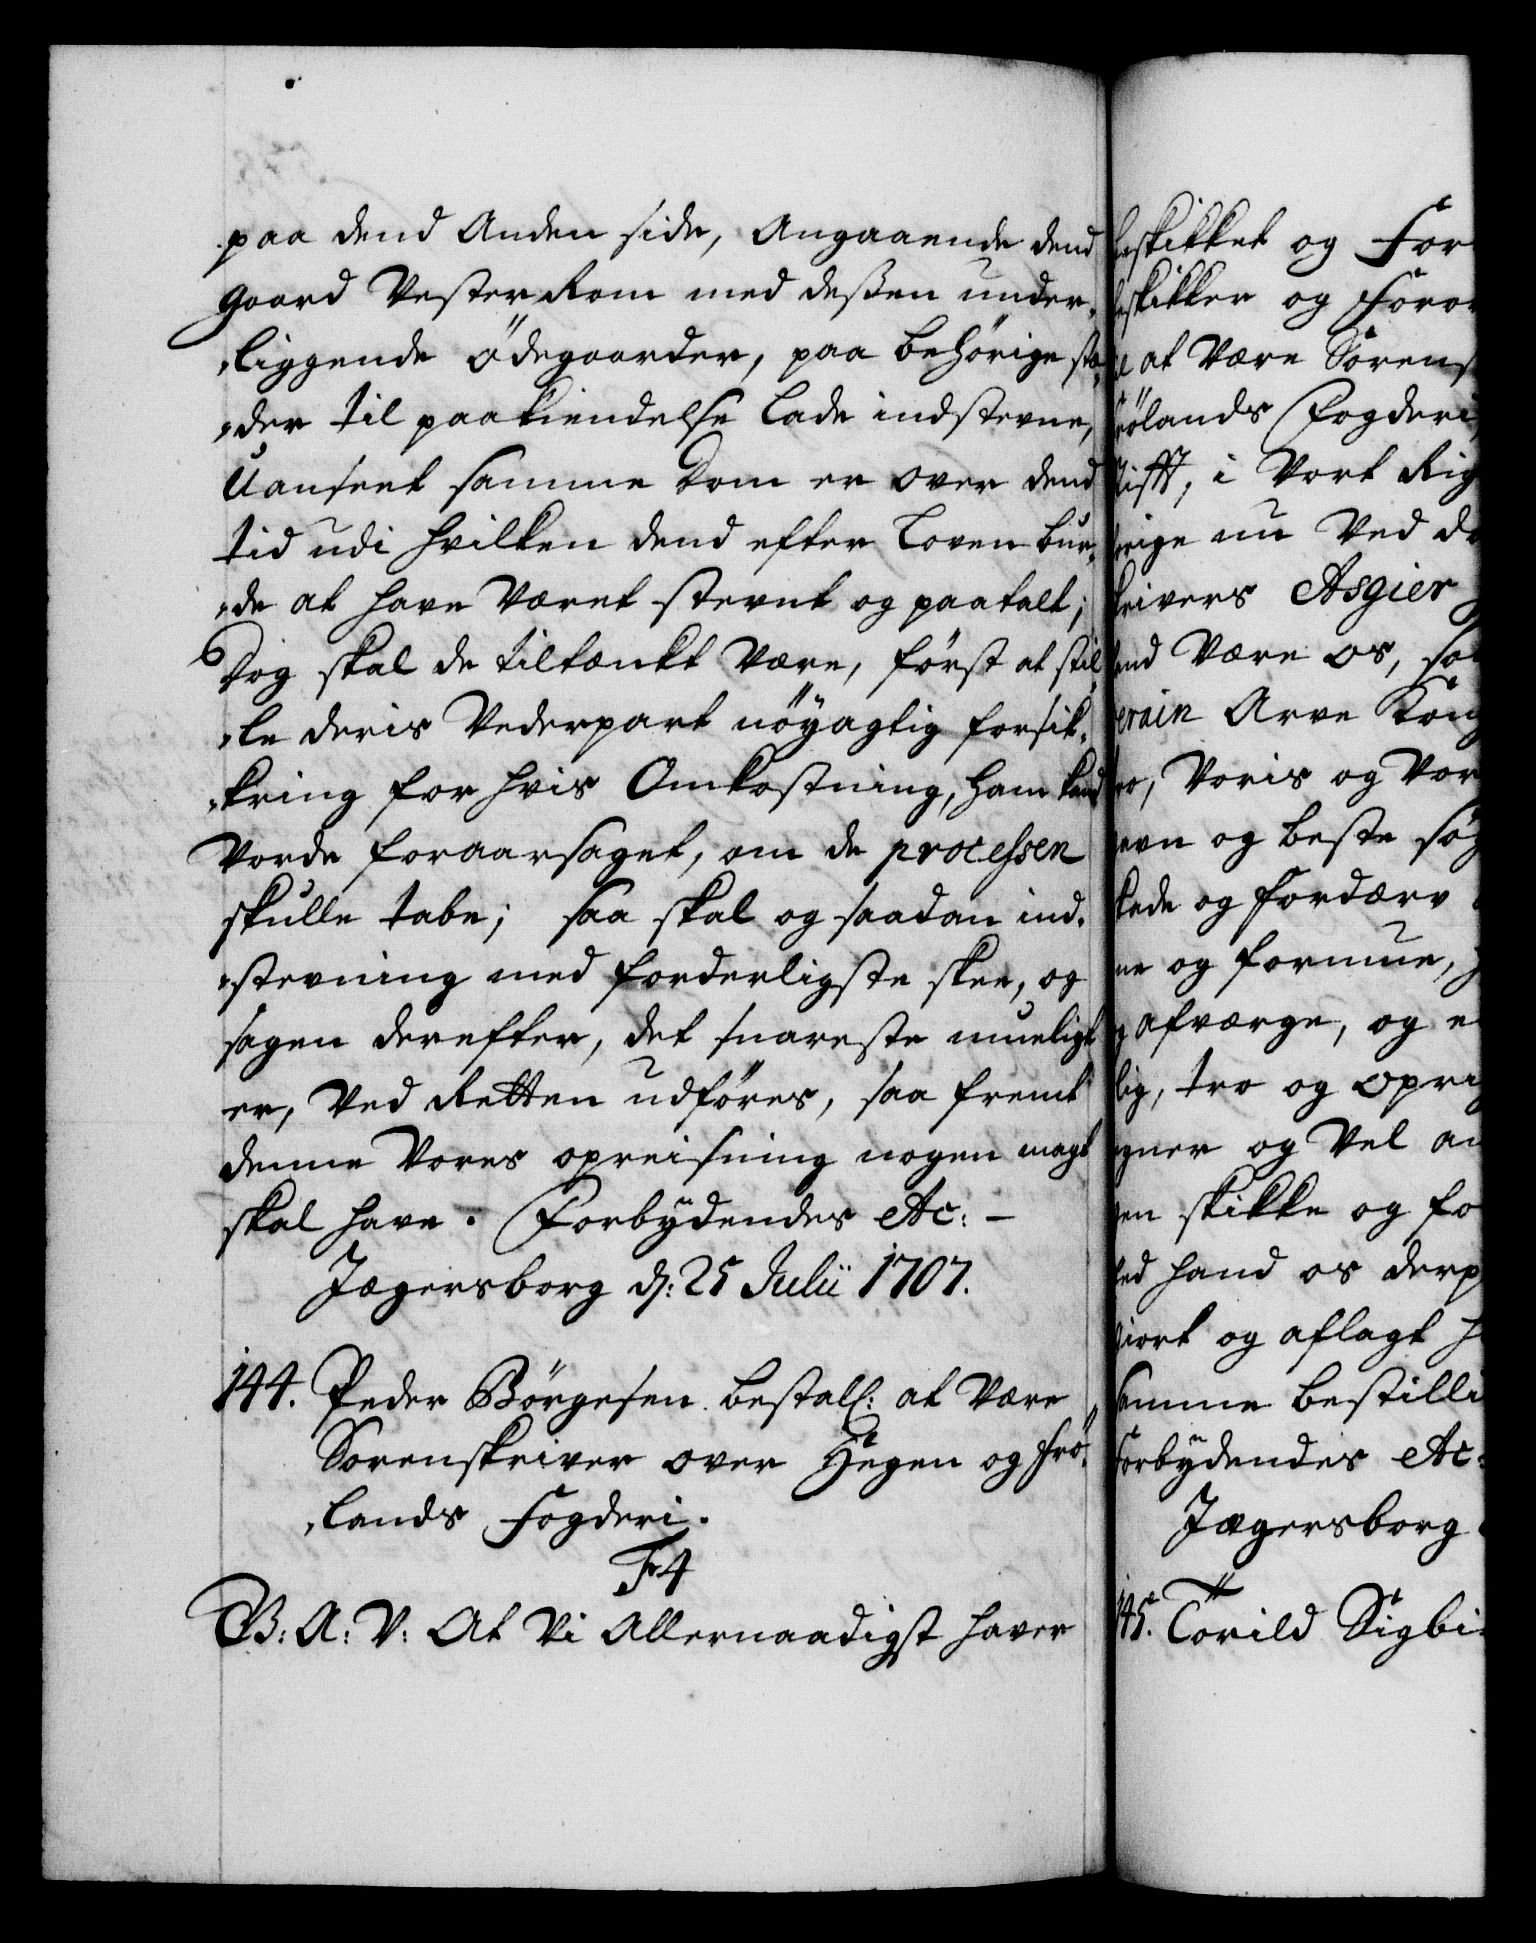 paa dend Anden side, Angaaende dend
Gaard Vester Rom med deßen under„
„liggende ödegaarder, paa behörige stæ„
„der til paakiendelse lade indstevne,
Uanseet samme Dom er over dend
tid udi hvilken dend efter Loven bur„
„de at have Været stevnt og paatalt;
Dog skal de tiltænkt Være, först at stil„
„le deris Vederpart nöyagtig forsik„
„kring for hvis Omkostning, ham kand
Vorde foraarsaget, om de processen
skulle tabe; saa skal og saadan ind„
„stevning med forderligste skee, og
sagen derefter, det snareste mueligt
er, Ved Retten udföres, saa fremt
denne Vores opreisning nogen magt
skal have. Forbydendes etc: –
Jægersborg d: 25 Julii 1707.
144. Peder Börgesen bestall: at Være
Sorenskriver over Heggen og Frö„
„lands Fogderi.
F4
G: A: V: At Vi Allernaadigst haver
beskikket og For
beskikker og Foror
at Være Sorens
Frölands Fogderi
Stifft, i Vort Rig
rige nu Ved dö
skrivers Asgier
hand Være os, so
verain Arve Kong
tro, Voris og Vor
gavn og beste sög
skade og fordærv
ne og formue,
afværge, og e
lig, tro og opri
egner og Vel an
ven skikke og fo
ved hand os derp
giort og aflagt h
samme bestilli
Forbydendes etc:
Jægersborg
145. Torild Sigbi